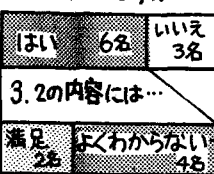 はい 6名 いいえ 3名
3.2の内容には…
満足 2名 よくわからない 4名